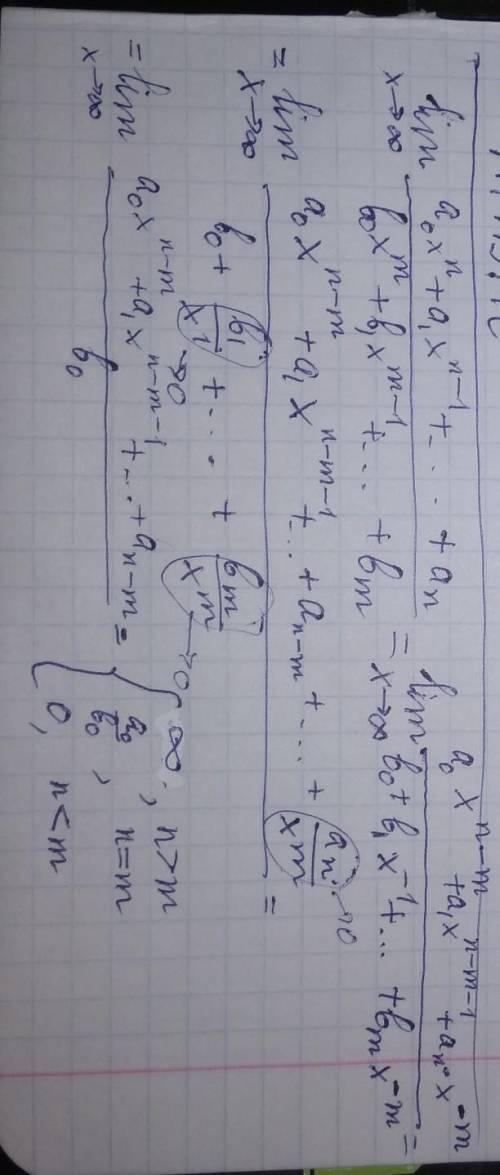 lim x→∞ (a₀xⁿ + a₁xⁿ⁻¹ + ... + aₙ) / (b₀xᵐ + b₁xᵐ⁻¹ + ... + bₘ) = lim x→∞ (a₀xⁿ⁻ᵐ + a₁xⁿ⁻ᵐ⁻¹ + aₙ·x⁻ᵐ) / (b₀ + b₁x⁻¹ + ... + bₘx⁻ᵐ) =
= lim x→∞ (a₀xⁿ⁻ᵐ + a₁xⁿ⁻ᵐ⁻¹ + ... + aₙ₋ₘ + ... + aₙ/xᵐ →0) / (b₀ + b₁/x →0 + ... + bₘ/xᵐ →0) =
= lim x→∞ (a₀xⁿ⁻ᵐ + a₁xⁿ⁻ᵐ⁻¹ + ... + aₙ₋ₘ) / b₀ = { ∞, n>m
a₀/b₀, n=m
0, n<m